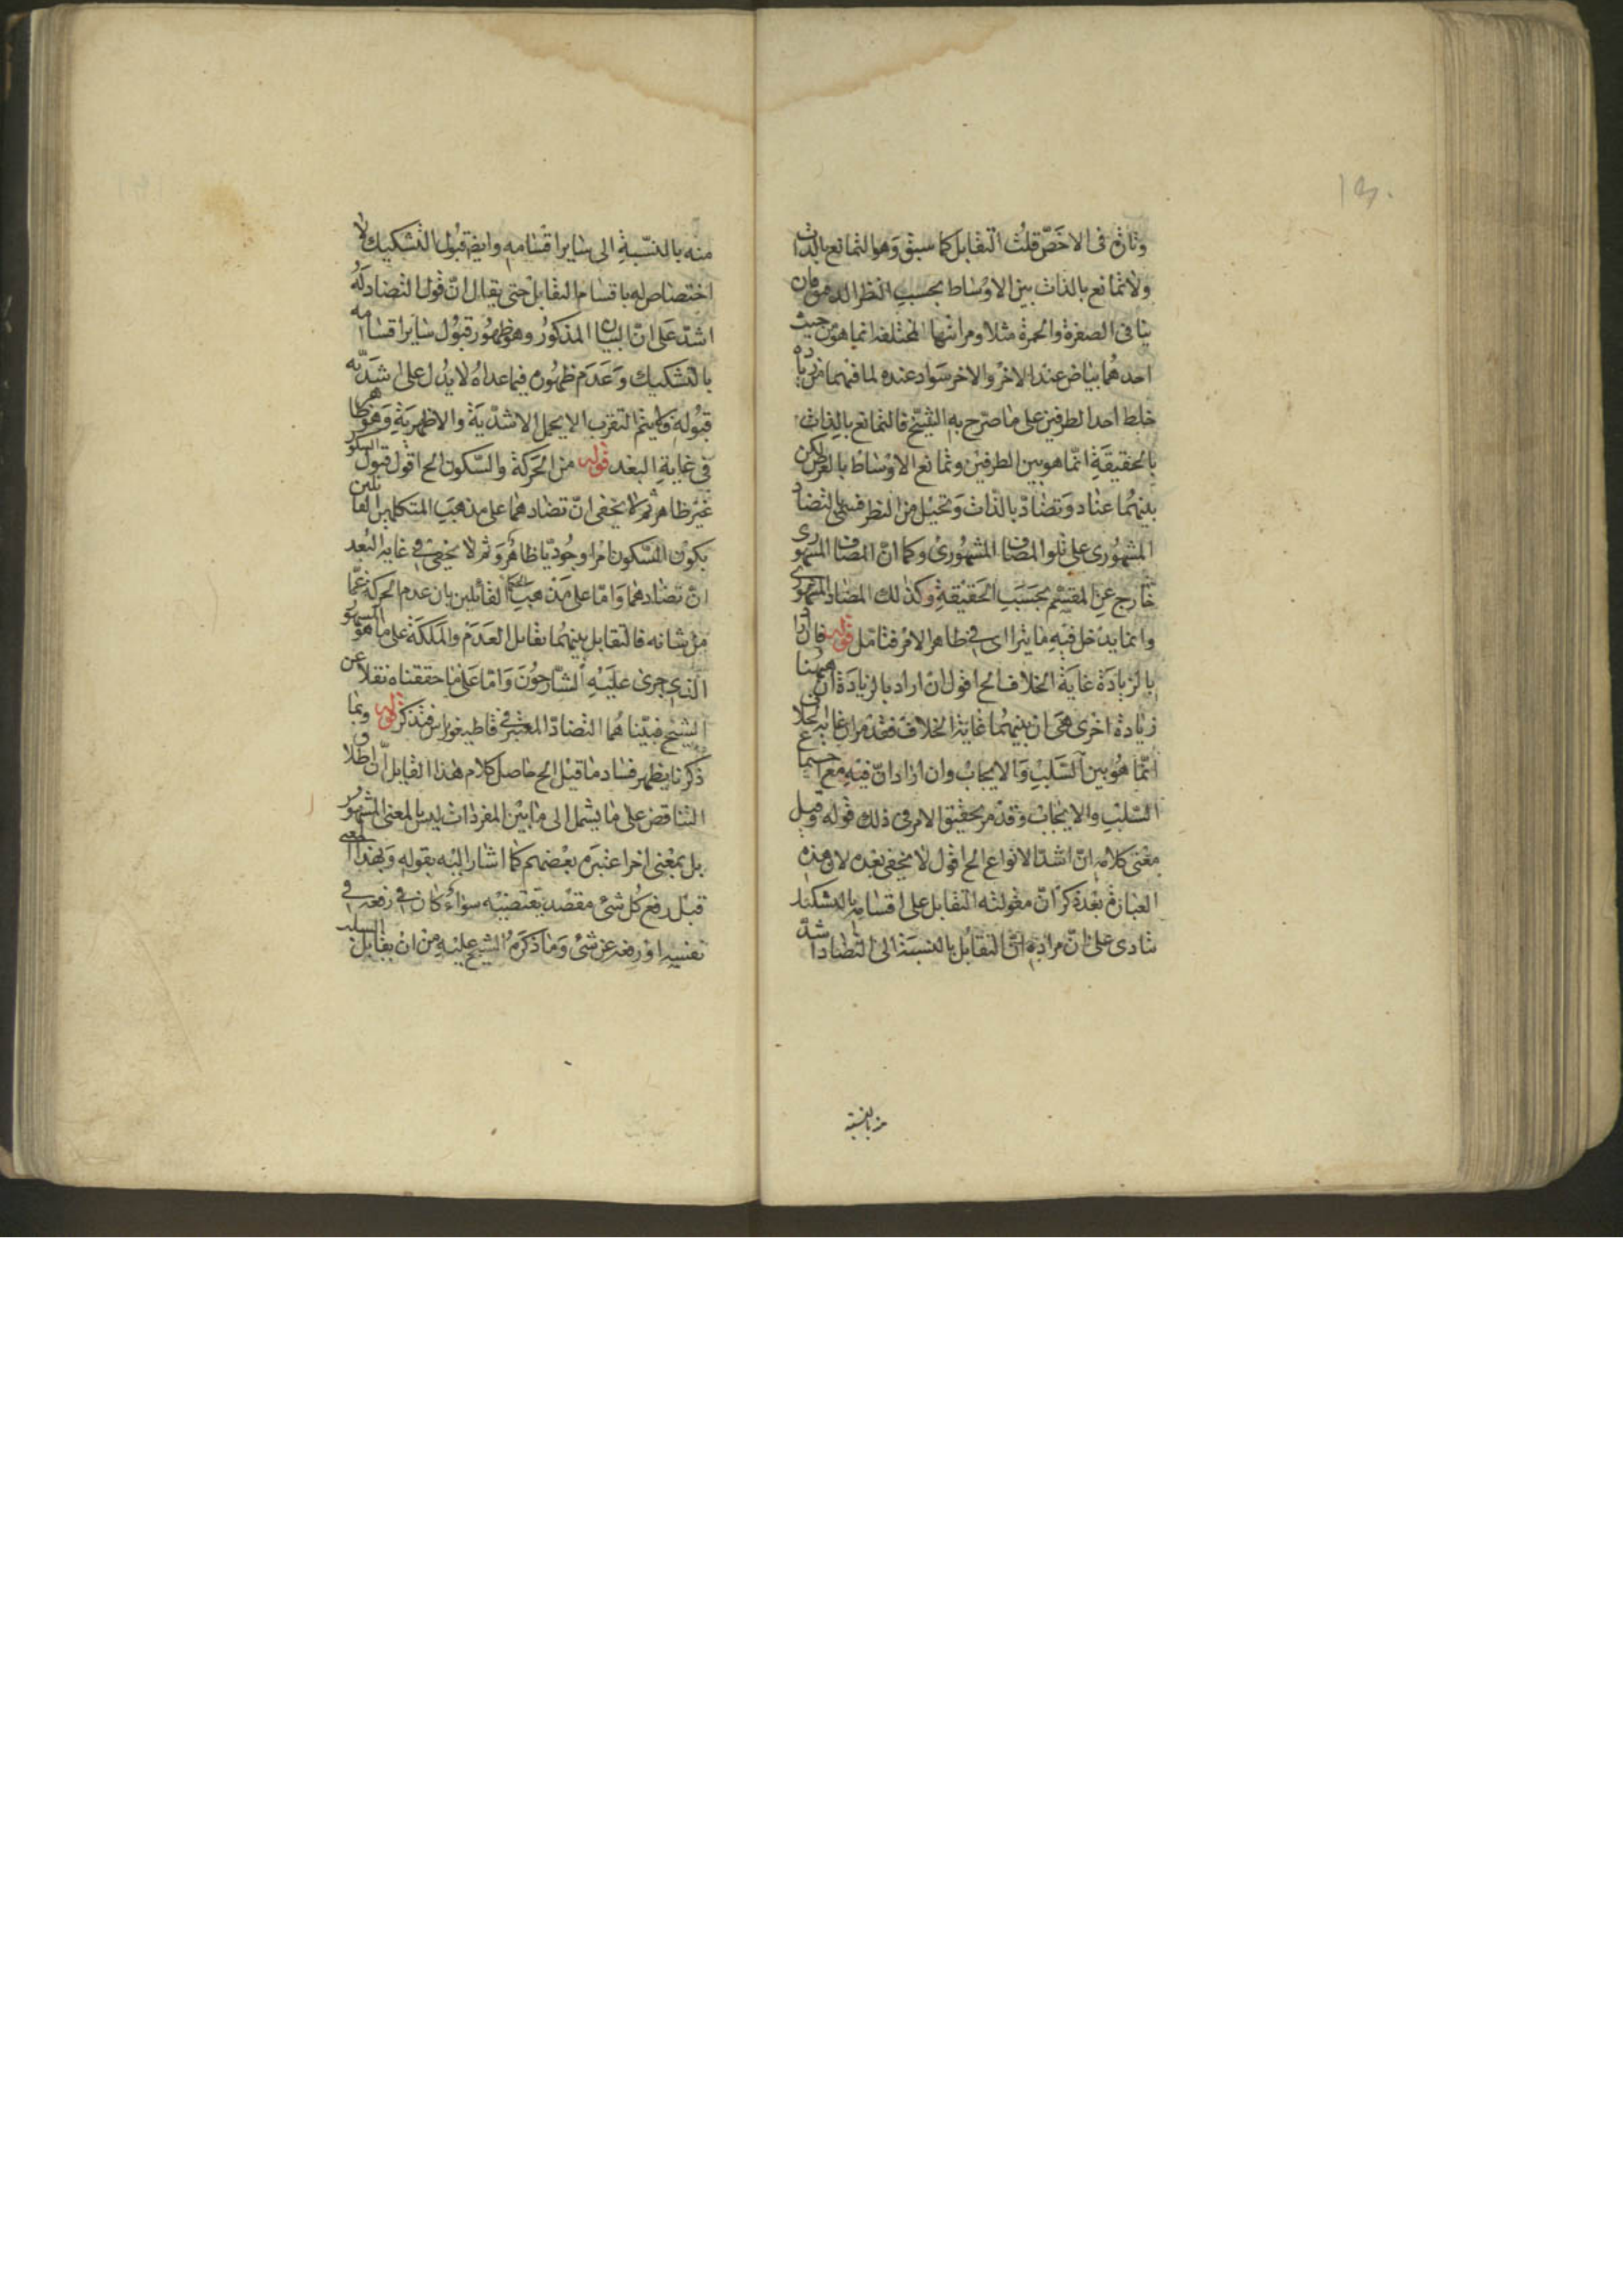 ١٣٠
وتارة فى الاخص قلت التقابل كما سبق وهو التمانع بالذات
ولا تمانع بالذات بين الاوساط بحسب النظر الدقيق فان
ينافى الصفرة والحمرة مثلا ومراتبها المختلفة انما هو من حيث
احدهما بياض عند الاخر والاخر سواد عنده لما فيهما من
خلط احد الطرفين على ما صرح به الشيخ فالتمانع بالذات
بالحقيقة انما هو بين الطرفين وتمانع الاوساط بالعرض لكن
بينهما عناد وتضاد بالذات وتخيل من النظر فسمى بالتضاد
المشهورى على تلو المضاف المشهورى وكما ان المضاف المشهورى
خارج عن المقسم بحسب الحقيقة وكذلك المضاد المشهورى
وانما يدخل فيه ما يتراءى فى ظاهر الامر فتامل قوله فان اراد
بالزيادة غاية الخلاف الخ اقول ان اراد بالزيادة ان ههنا
زيادة اخرى هى ان بينهما غاية الخلاف فقد مر ان غاية الخلاف
انما هو بين السلب والايجاب وان اراد ان فيه مع
السلب والايجاب وقد مر تحقيق الامر فى ذلك قوله وقيل
معنى كلامه ان اشد الانواع الخ اقول لا يخفى بعده لان هذه
العبارة بعد ذكر ان مقولية التقابل على اقسامه بالتشكيك
تنادى على ان مراده ان التقابل بالنسبة الى التضاد اشد
منه بالنسبة
منه بالنسبة الى ساير اقسامه وايضا قبول التشكيك لا
اختصاص له باقسام التقابل حتى يقال ان قول التضاد له
اشد على ان البيان المذكور وهو ظهور قبول ساير اقسامه
بالتشكيك وعدم ظهوره فيما عداه لا يدل على اشدية
قبوله فلا يتم التقريب الا بحمل الاشدية والاظهرية وهو كما
فى غاية البعد قوله من الحركة والسكون الخ اقول قبول السكون
غير ظاهر ثم لا يخفى ان تضادهما على مذهب المتكلمين القائلين
بكون السكون امرا وجوديا ظاهر وثم لا يخفى فى غاية البعد
ان تضادهما واما على مذهب الحكماء القائلين بان عدم الحركة عما
من شانه فالتقابل بينهما تقابل العدم والملكة على ما هو المشهور
الذى جرى عليه الشارحون واما على ما حققناه نقلا عن
الشيخ فبينا هما التضاد المعتبر فى قاطيغورياس فتذكر قوله وبما
ذكرنا يظهر فساد ما قيل الخ حاصل كلام هذا القايل ان اطلاق
التناقض على ما يشمل الى ما بين المفردات ليس بالمعنى المشهور
بل بمعنى اخر اعتبره بعضهم كما اشار اليه بقوله وبهذا المعنى
قيل رفع كل شئ مقصد بنقيضه سواء كان فى رفعه فى
نفسه او رفعه عن شئ وما ذكره الشيخ عليه من ان يقابل السلب